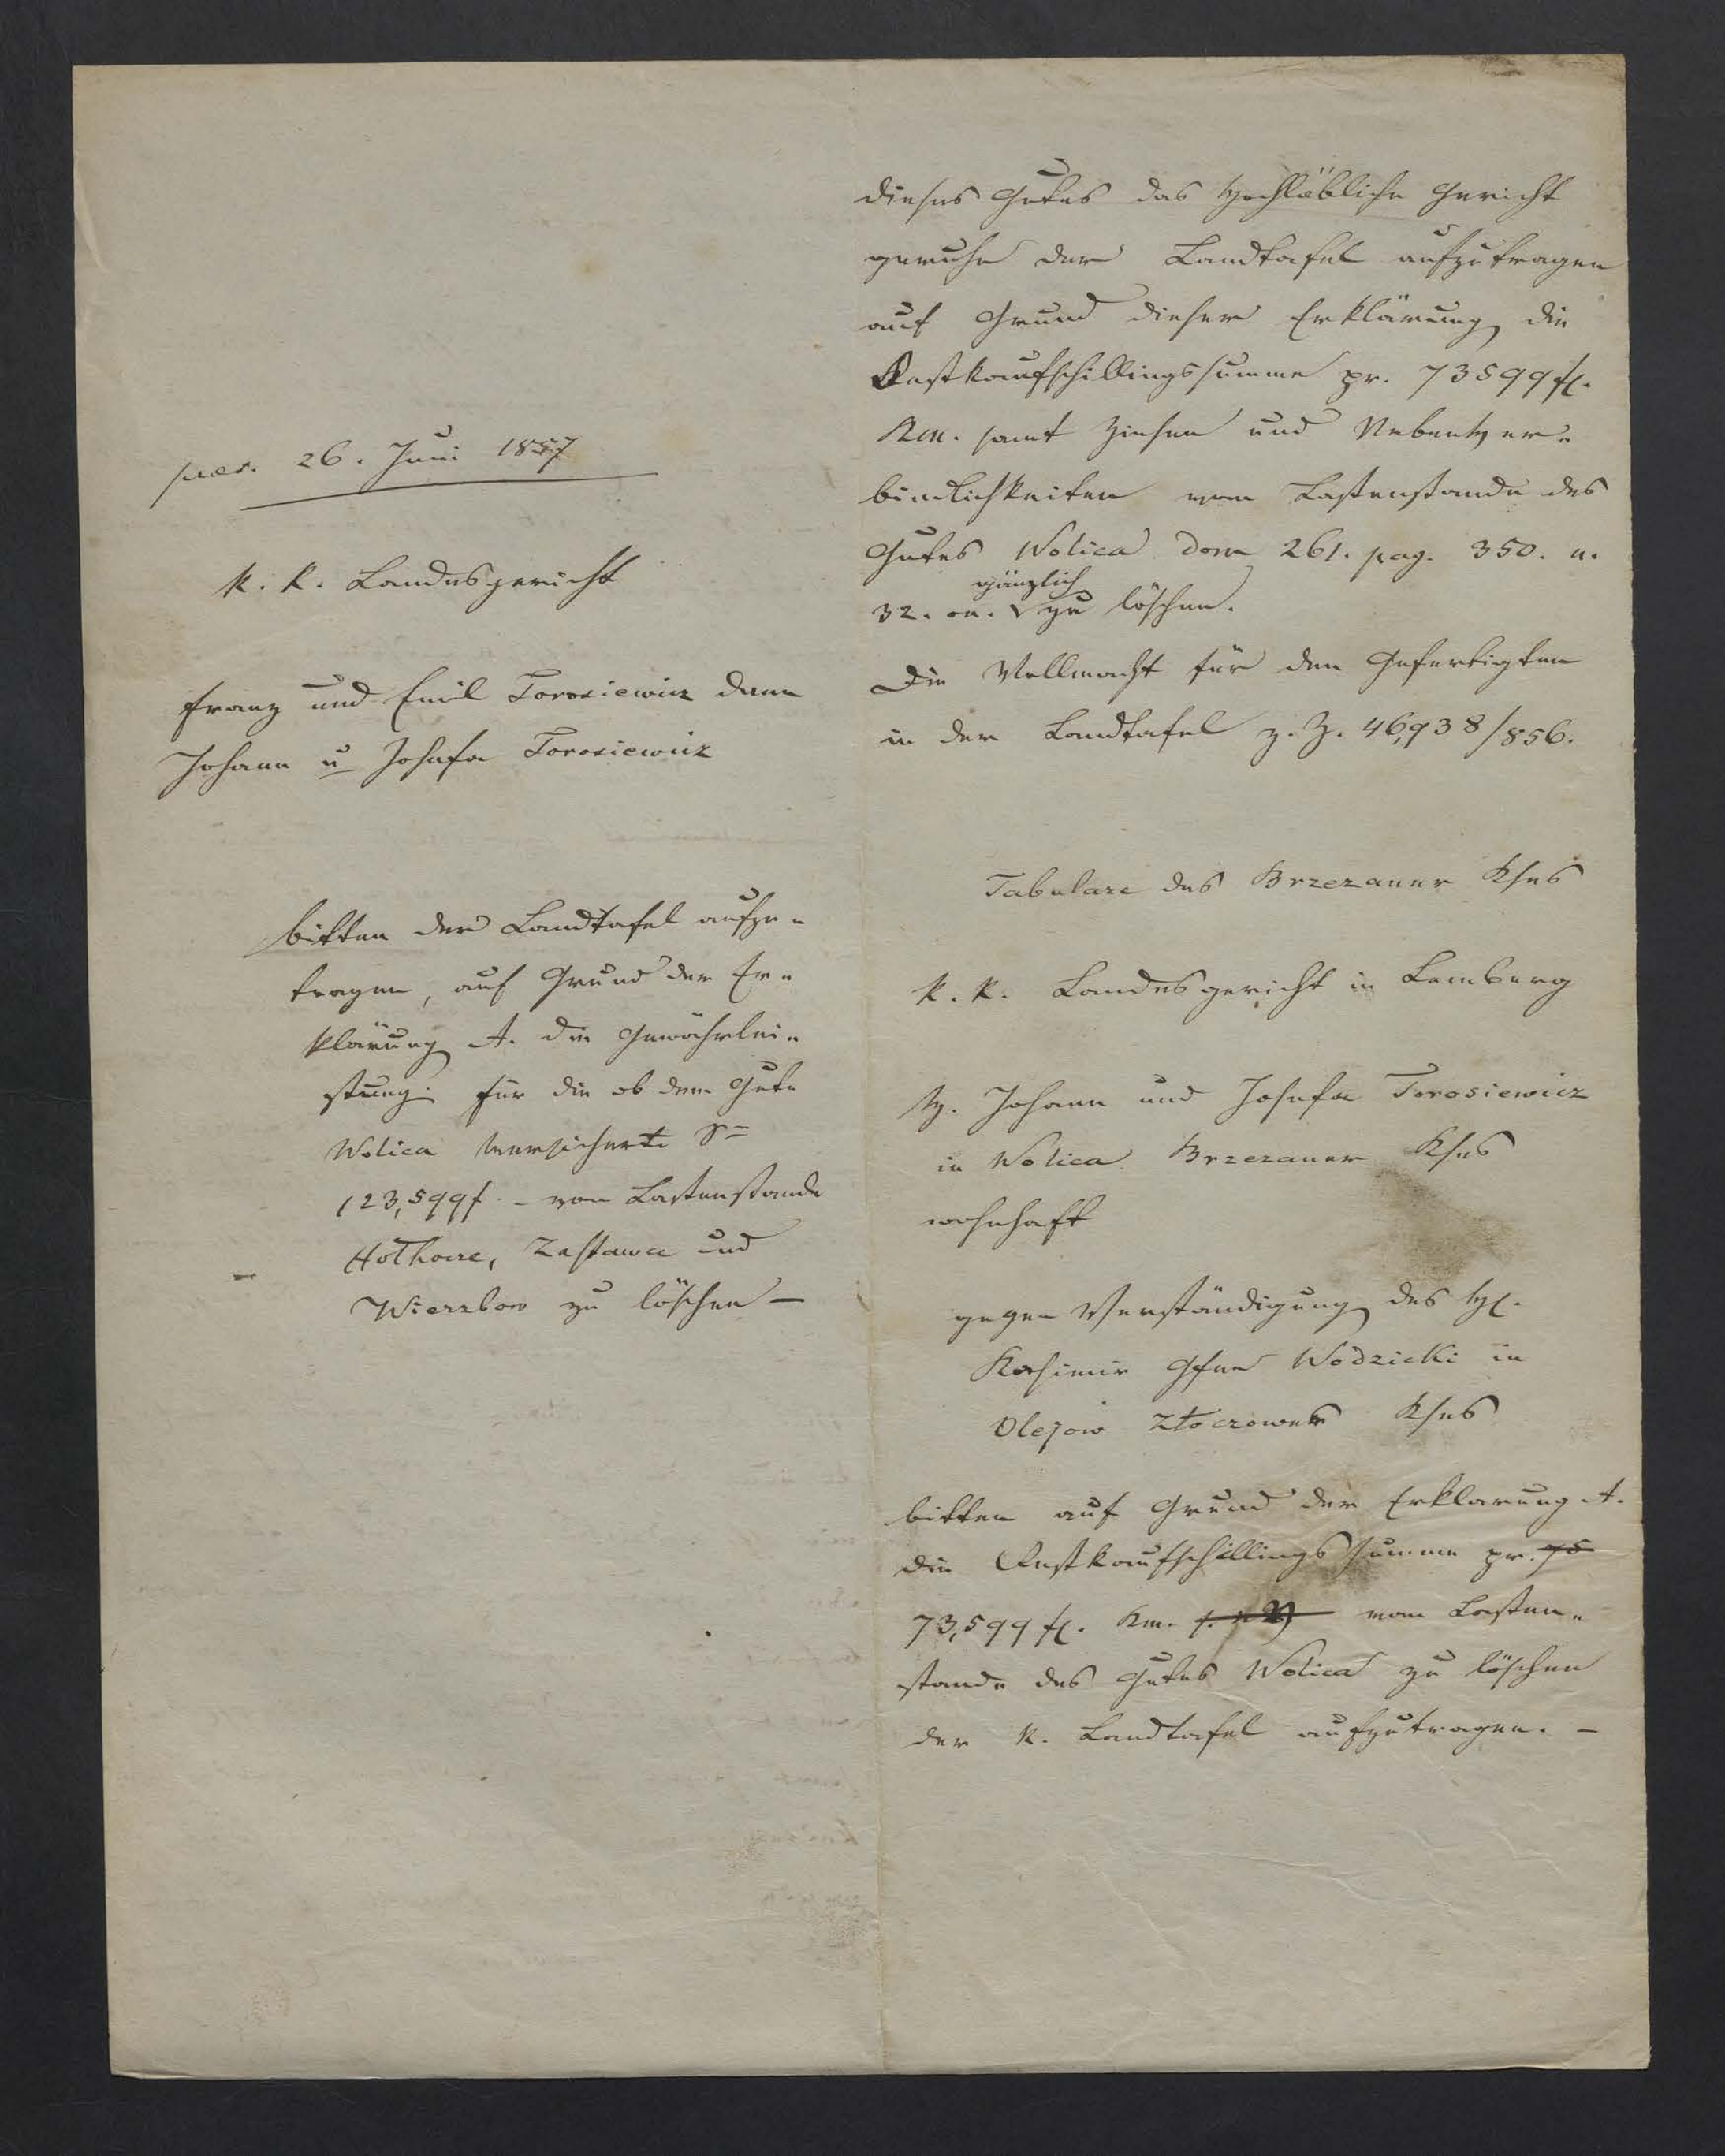 praes. 26. Juni 1857
k. k. Landesgericht
Franz und Emil Torosiewicz dann
Johann u Josefa Torosiewicz
bitten der Landtafel aufzu-
tragen, auf Grund der Er-
klärung A. die Gewährlei-
stung für die ob dem Gute
Wolica versicherte S=
123,599 f. – vom Lastenstande
Hołhocze, Zastawce und
Wierzbow zu löschen –
dieses Gutes das Hochlöbliche Gericht
geruhe der Landtafel aufzutragen
auf Grund dieser Erklärung die
Restkaufschillingssumme pr. 73599 fl.
Km. samt Zinsen und Nebenver-
bindlichkeiten vom Lastenstande des
Gutes Wolica dom 261. pag. 350. n.
gänzlich
32. on. zu löschen.
Die Vollmacht für den Gefertigten
in der Landtafel z. Z. 46,938/856.
Tabulare des Brzezaner Kses
k. k. Landesgericht in Lemberg
H. Johann und Josefa Torosiewicz
in Wolica Brzezaner Kses
wohnhaft
gegen Verständigung des H.
Kasimir Gfen Wodzicki in
Olejow Złoczower Kses
bitten auf Grund der Erklarung A.
die Restkaufschillingssumme pr. 75
73,599 fl. Km. vom Lasten-
stande des Gutes Wolica zu löschen
der k. Landtafel aufzutragen. –